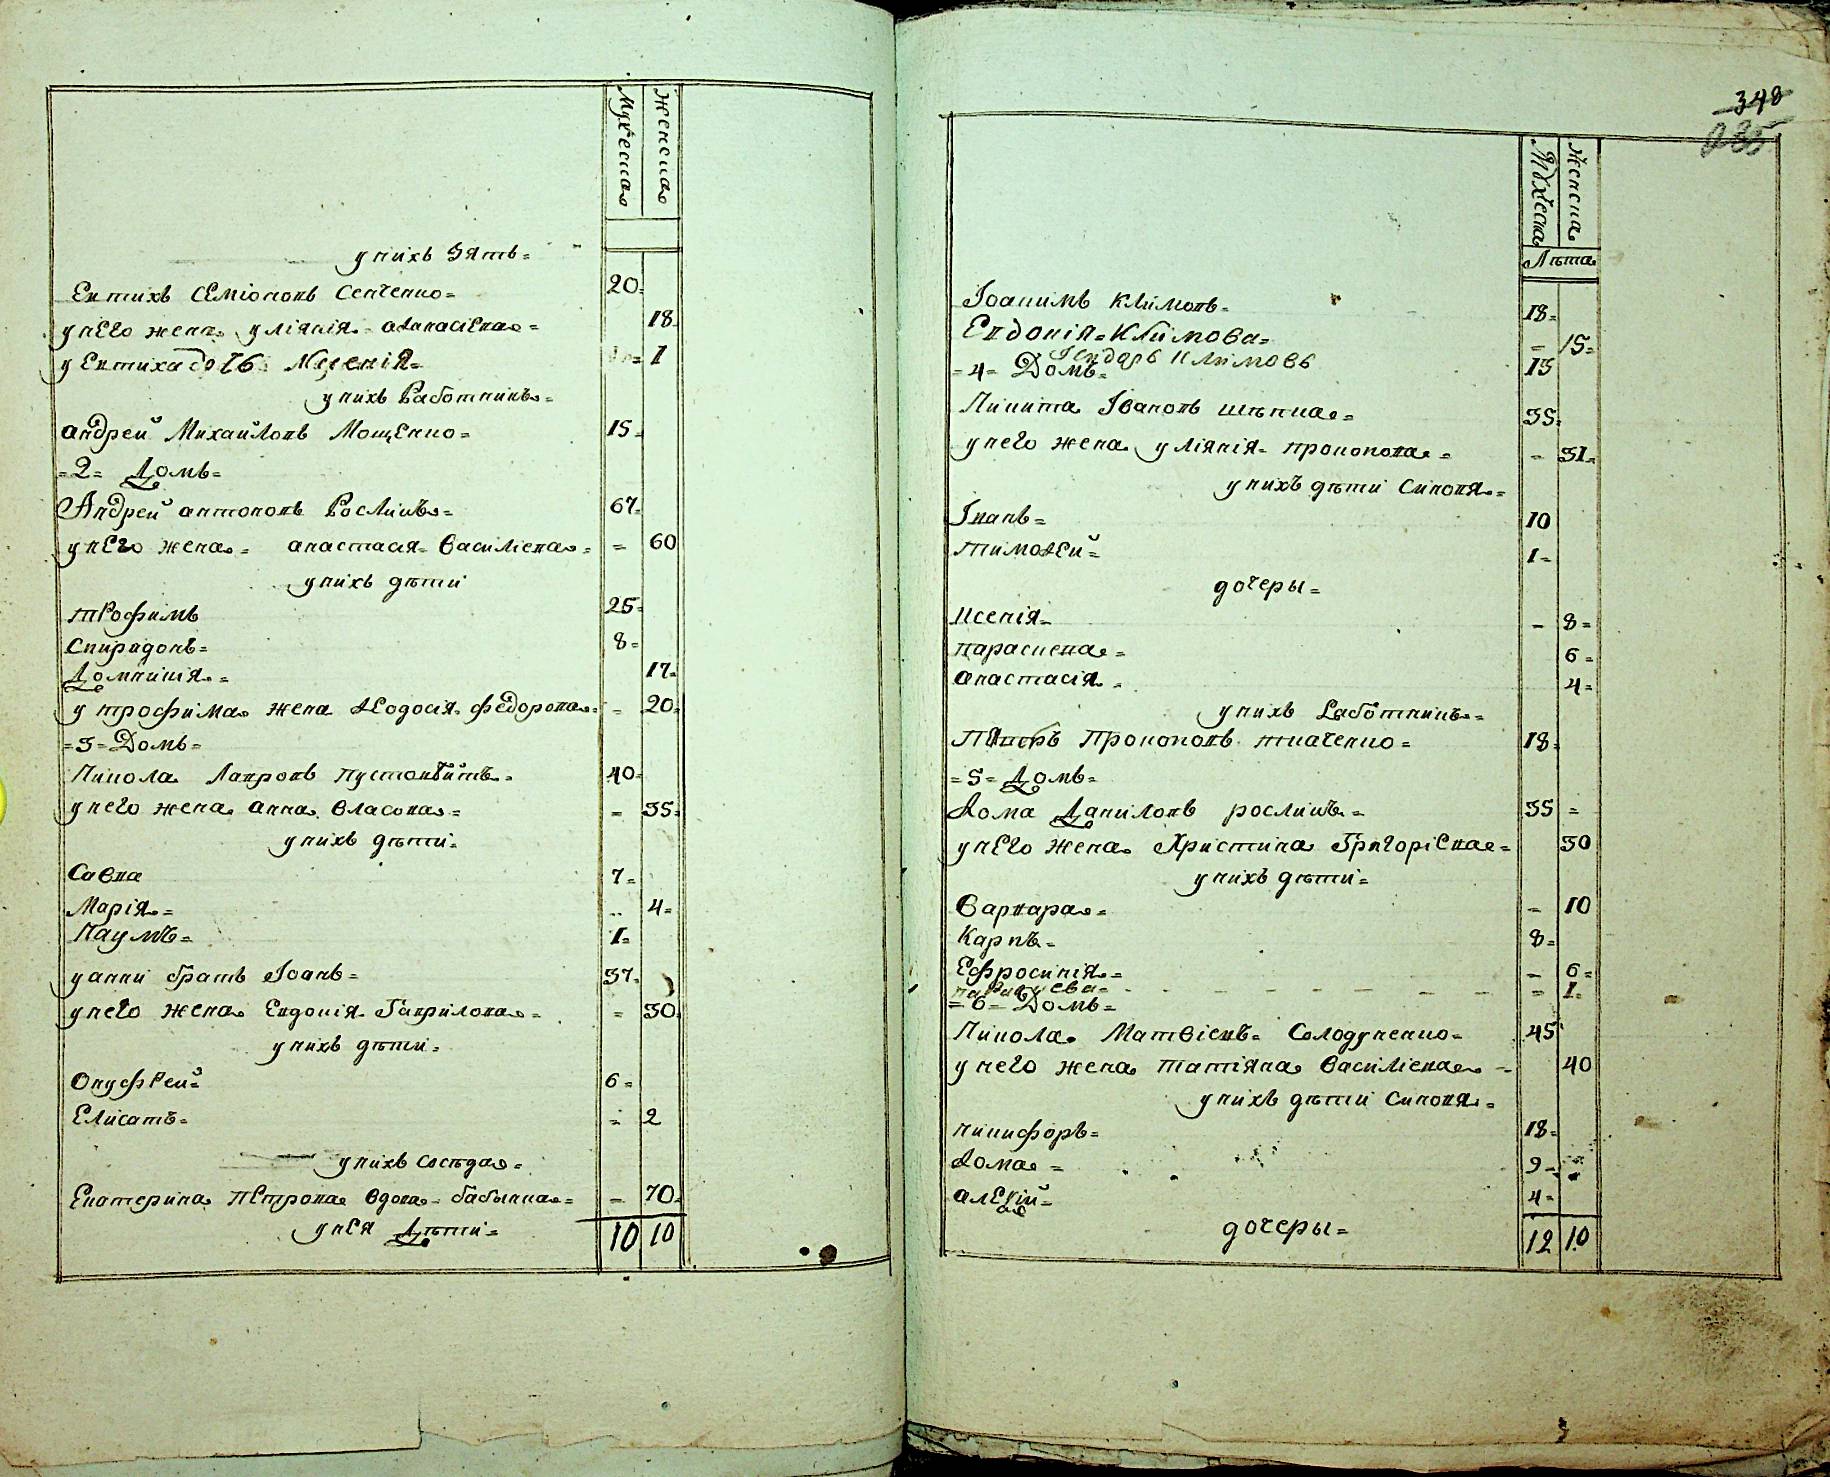 Мужеска
Женска
у нихъ Зять=
Евтихъ Семіоновъ Сенченко= 20
у него жена Уліянія Аѳанасіева= 18
у Евтиха дочь 1
у нихъ Работникъ=
Андрей Михайловъ Мощенко= 15
=2= Домъ=
Андрей Антоновъ Росликъ= 67
у него жена= Анастасія Василіева= 60
у нихъ дѣти
Трофимъ 25
Спиридонъ= 8
Домникія= 17
у Трофима жена Ѳеодосія Федорова= 20
=3= Домъ=
Никола Лавровъ Пустовѣйтъ= 40
у него жена Анна Власова= 35
у нихъ дѣти=
Савва 7
Марія= 4
Наумъ= 1
у анни братъ Іоанъ= 37
у него жена Евдокія Гаврилова= 30
у нихъ дѣти=
Онуфрей= 6
Елисатъ= 2
у нихъ сосѣда=
Екатерина Петрова вдова= Бабычка= 70
у нея Дѣти= 10 10
348
Мужеска
Женска
Лѣта
Іоакимъ Климовъ= 18
Евдокія= Климова= 15
Климовъ 13
=4= Домъ=
Никита Івановъ= 35
у него жена Уліянія Прокопова= 31
у нихъ дѣти Синовя=
Іванъ= 10
Тимоѳей= 1
дочеры=
Ксенія= 8
Параскева= 6
Анастасія= 4
у нихъ Работникъ=
Прокоповъ Ткаченко= 18
=5= Домъ=
Ѳома Даниловъ Росликъ= 35
у него жена Христина Григоріева= 30
у нихъ дѣти=
Варвара= 10
Карпъ= 8
Ефросинія= 6
Параскева= 1
=6= Домъ=
Никола Матвіевъ Солодученко= 45
у него жена Татіяна Василіева= 40
у нихъ дѣти Синовя=
Никифоръ= 18
Ѳома= 9
Алеѯій= 4
дочеры= 12 10